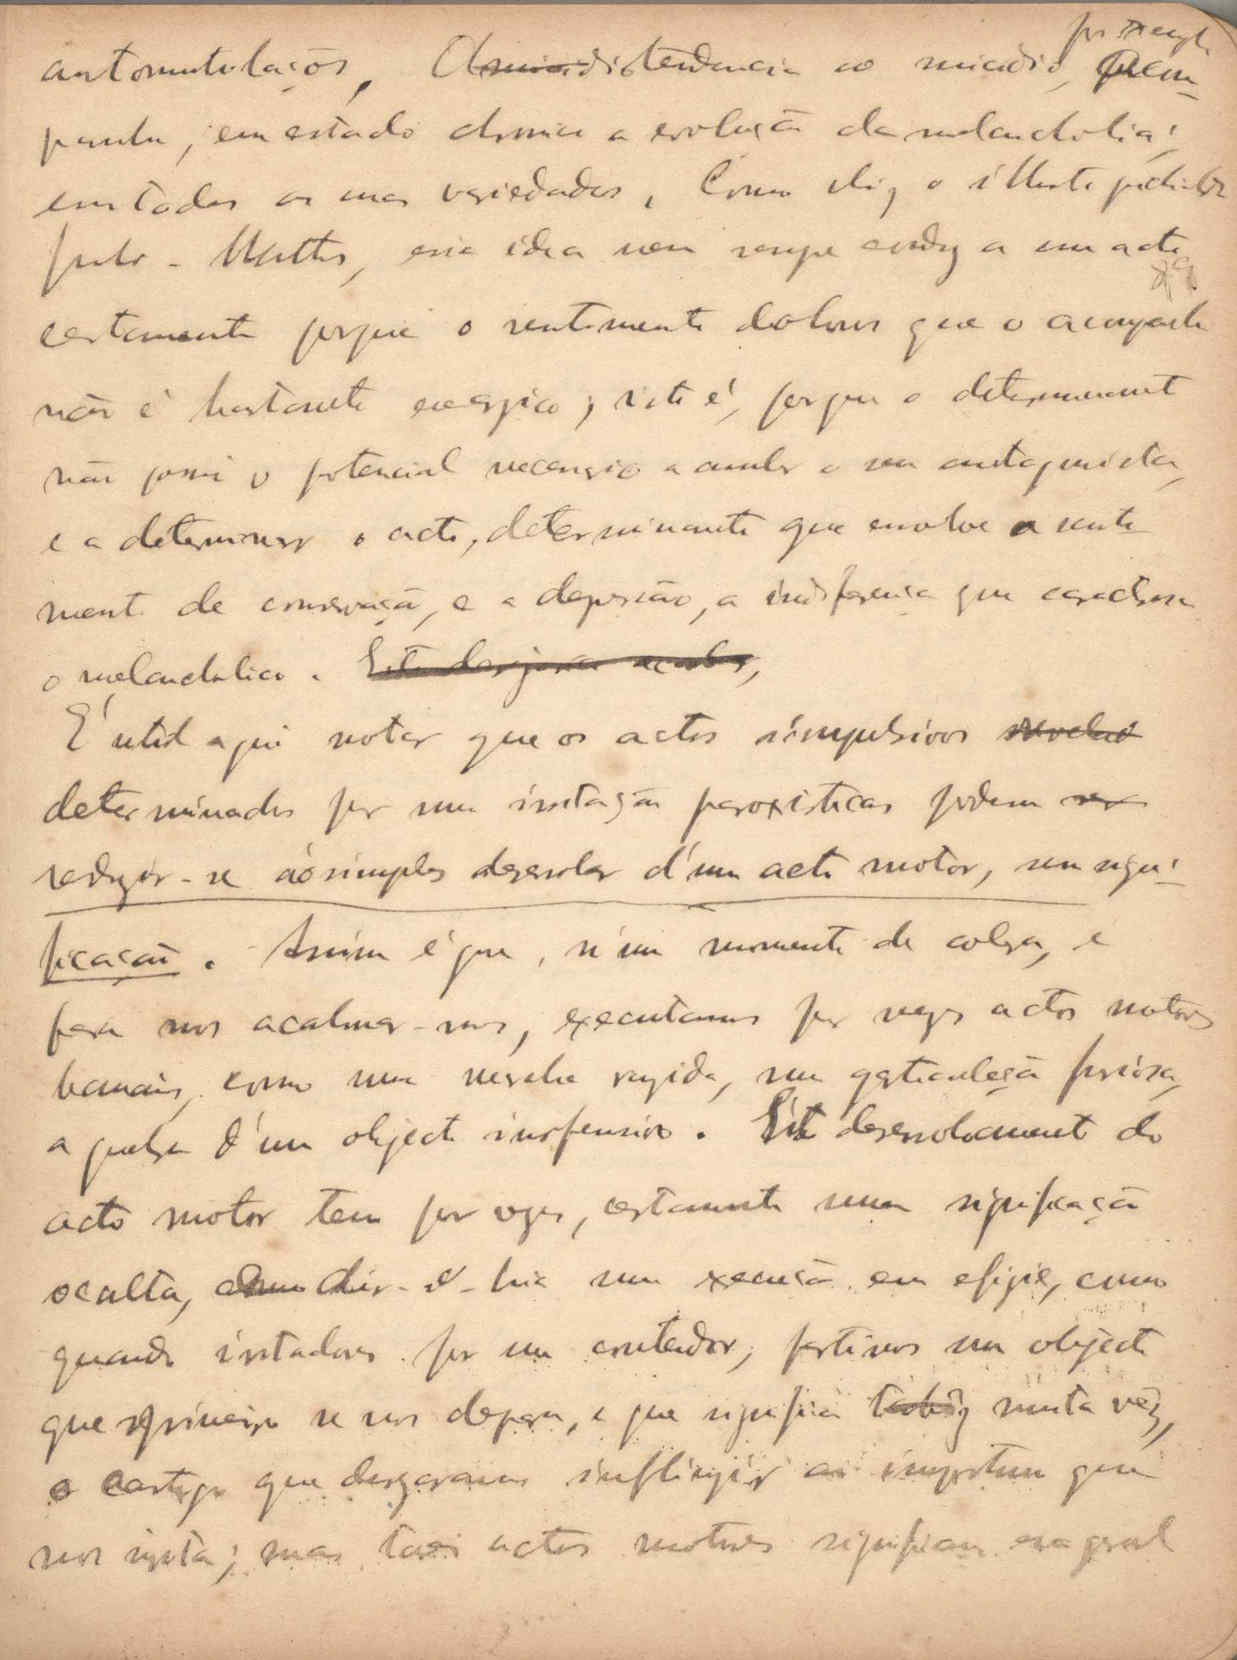 por exemplo
automutilações, A tendencia ao suicidio, acom-
panha, em estado chronico a evolução da melancholia,
em todas as suas variedades. Como diz o illustre psychiatra
Julio de Mattos, essa idea nem sempre conduz a um acto
certamente porque o sentimento doloroso que o acompanha
não é bastante energico, isto é, porque o determinante
não possui o potencial necessario a annular o seu antagonista,
e a determinar o acto, determinante que envolve o senti
mento de conservação, e a depressão, a indiferença que caracterisa
o melancholico.
É util aqui notar que os actos impulsivos
determinados por uma irritação paroxisticas podem
reduzir-se ao simples desenrolar d'um acto motor, sem signi-
ficação. Assim é que, n'um momento de colera, e
para nos acalmar-nos, executamos por vezes actos motores
banais, como uma marcha rapida, uma gesticulação furiosa,
a quebra d'um objecto inofensivo. Este desenrolamento do
acto motor tem por vezes, certamente uma significação
occulta, dir-se-hia uma execução em efigie, como
quando irritados por um contendor, partimos um objecto
que primeiro se nos depara, e que significa muita vez,
o castigo que desejaramos inflingir ao importuno que
nos irrita; mas taes actos motores significam em geral